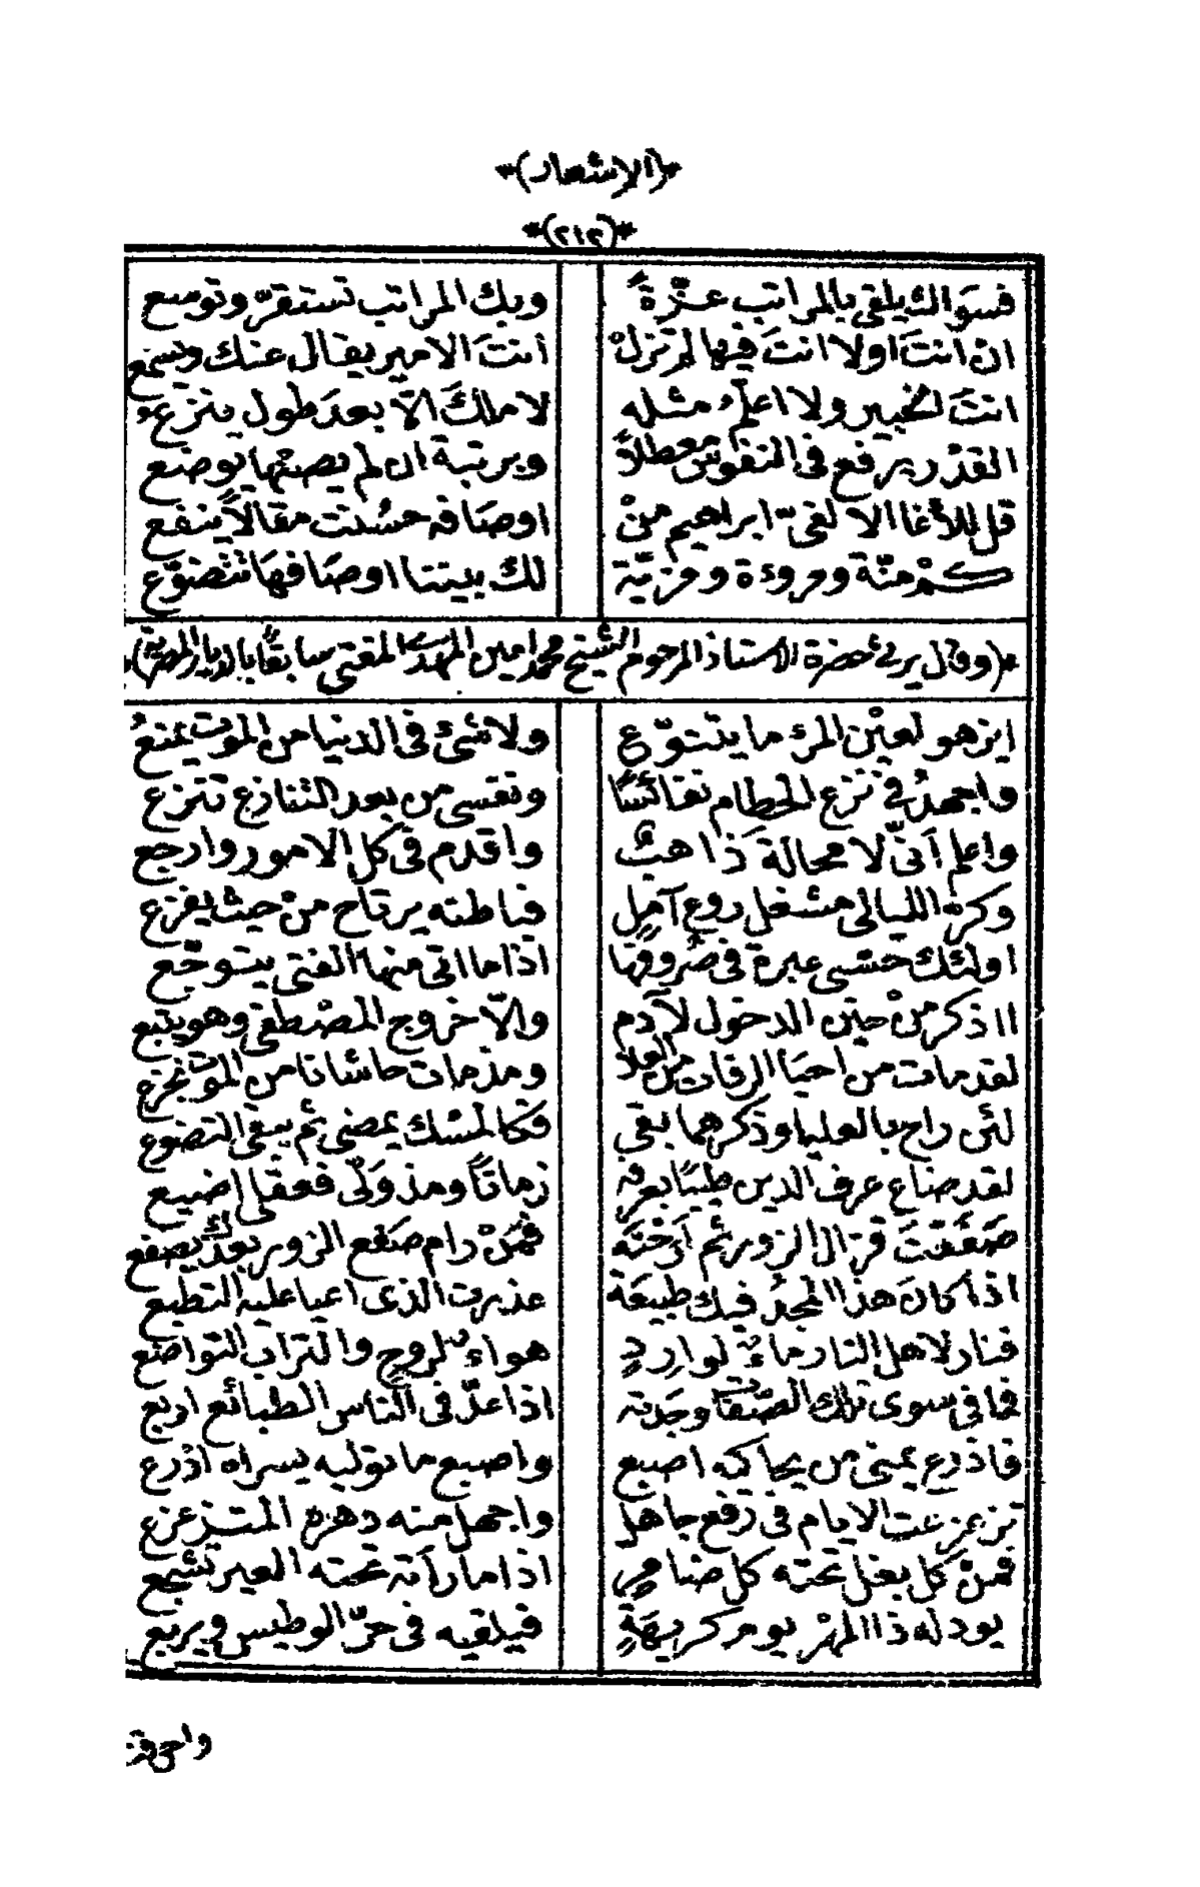 *(الاشعار)*
*(٢١٢)*
فسواك يلقى بالمراتب عزّةً وبك المراتب تستقرّ وتوسع
ان انتَ اولا انتَ فيها لم تزلْ انتَ الامير يقال عنك وتسمع
انتَ الخبير ولا اعلّم مثله لا ملكَ الّا بعدَ طول ينزع
القدْر يرفع فى النفوس معطلاً وبرتبة ان لم يصنها يوضع
قل للأغا الالفىّ ابراهيم منْ اوصافه حسُنت مقالاً ينفع
كمْ منّة ومروءة ومزيّة لك بيننا اوصافهَا تتضوّع
*(وقال يرثى حضرة الاستاذ المرحوم الشيخ محمد امين المهدى المفتى سابقًا بالديار المصرية)*
ايزهو لعيْن المرء ما يتنوّع ولا شئ فى الدنيا من الموت يمنعُ
واجهدُ فى نزع الحطام نفائسًا ونفسى من بعد التنازع تنزع
واعلم أنّى لا محالة ذاهبٌ واقدم فى كل الامور وارجع
وكرّ الليالى مشغل روع آملٍ فباطنه يرتاح منْ حيث يفزع
اولئك حسبى عبرة فى صُروفها اذا ما اتى منها الفتى يتوجّع
ااذكر منْ حين الدخول لآدم والّا خروج المصْطفى وهو يتبع
لقد مات من احيَا الرفات من العلا ومذ مات حاشانا من الموت نجزع
لئن راح بالعليا وذكرهما بقى فكالمسْك يمضى ثم يبقى التضوع
لقد ضاع عرف الدين طيبًا بعرفه زماناً ومذ وَلّى فعقبى اضيع
صَفعْتَ قزال الزور ثم أرحْتَه فمَنْ رام صَفع الزور بعدك يصفع
اذا كانَ هذا المجدُ فيك طبيعَة عذرت الذى اعيا عليه التطبع
فنار لاهل النار ماءٌ لواردٍ هواءٌ لروحٍ والتراب التواضع
فما فى سوى تلك الصّفات وجَدته اذا عدّ فى الناس الطبائع اربع
فاذرع يمنى من يحاكه اصبع واصبع ما توليه يسراه اذرع
تزعزعت الايام فى رفع جاهل واجهل منه دهره المتزعزع
فمنْ كل بغل تحته كل ضامرٍ اذا ما رأته تحته العير تشجع
يود له ذا المهْر يوم كريهَةٍ فيلقيه فى حرّ الوطيس ويربع